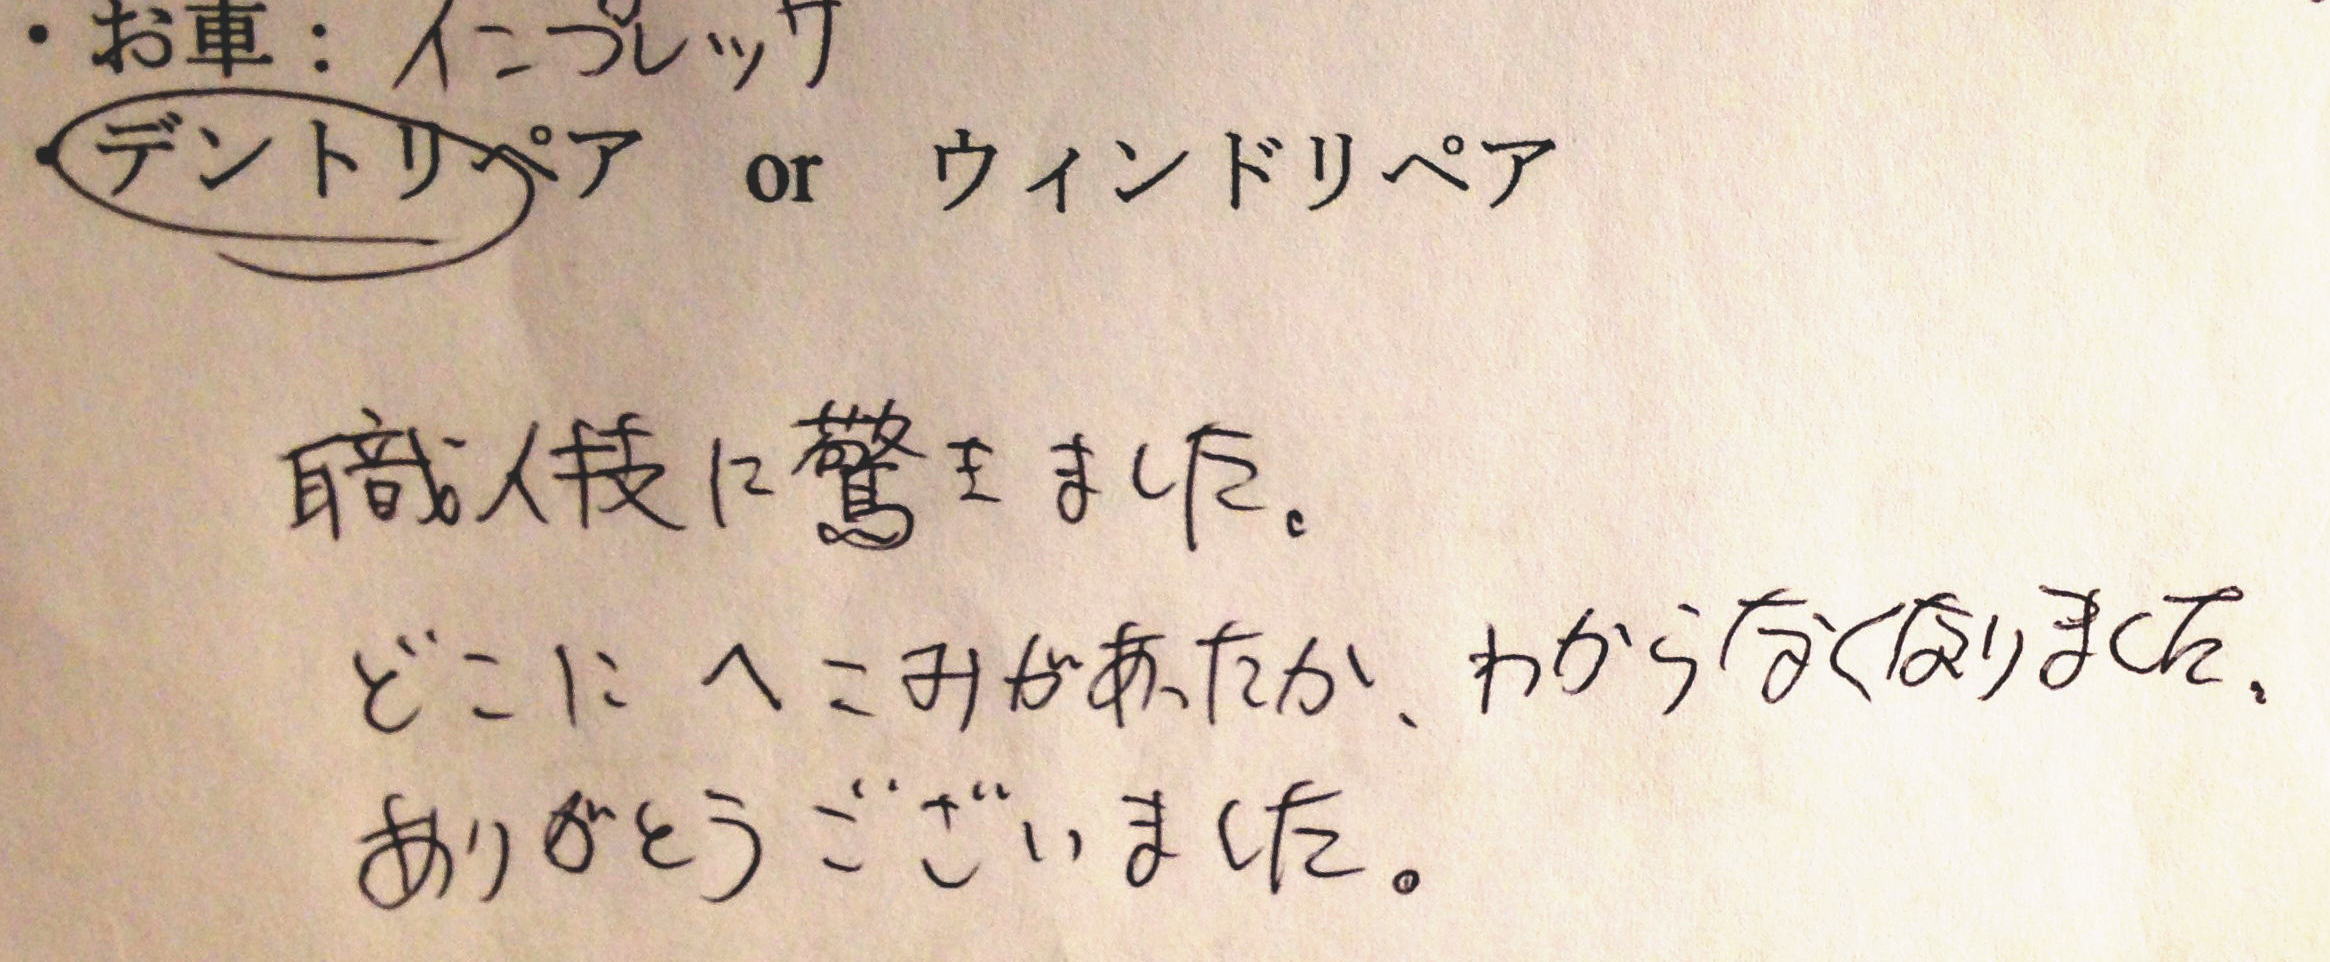 ・お車：インプレッサ
・デントリペア　or　ウィンドリペア
職人技に驚きました。
どこにへこみがあったか、わからなくなりました。
ありがとうございました。